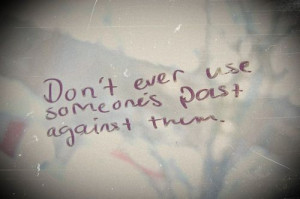 Don't ever use
someone's past
against them.